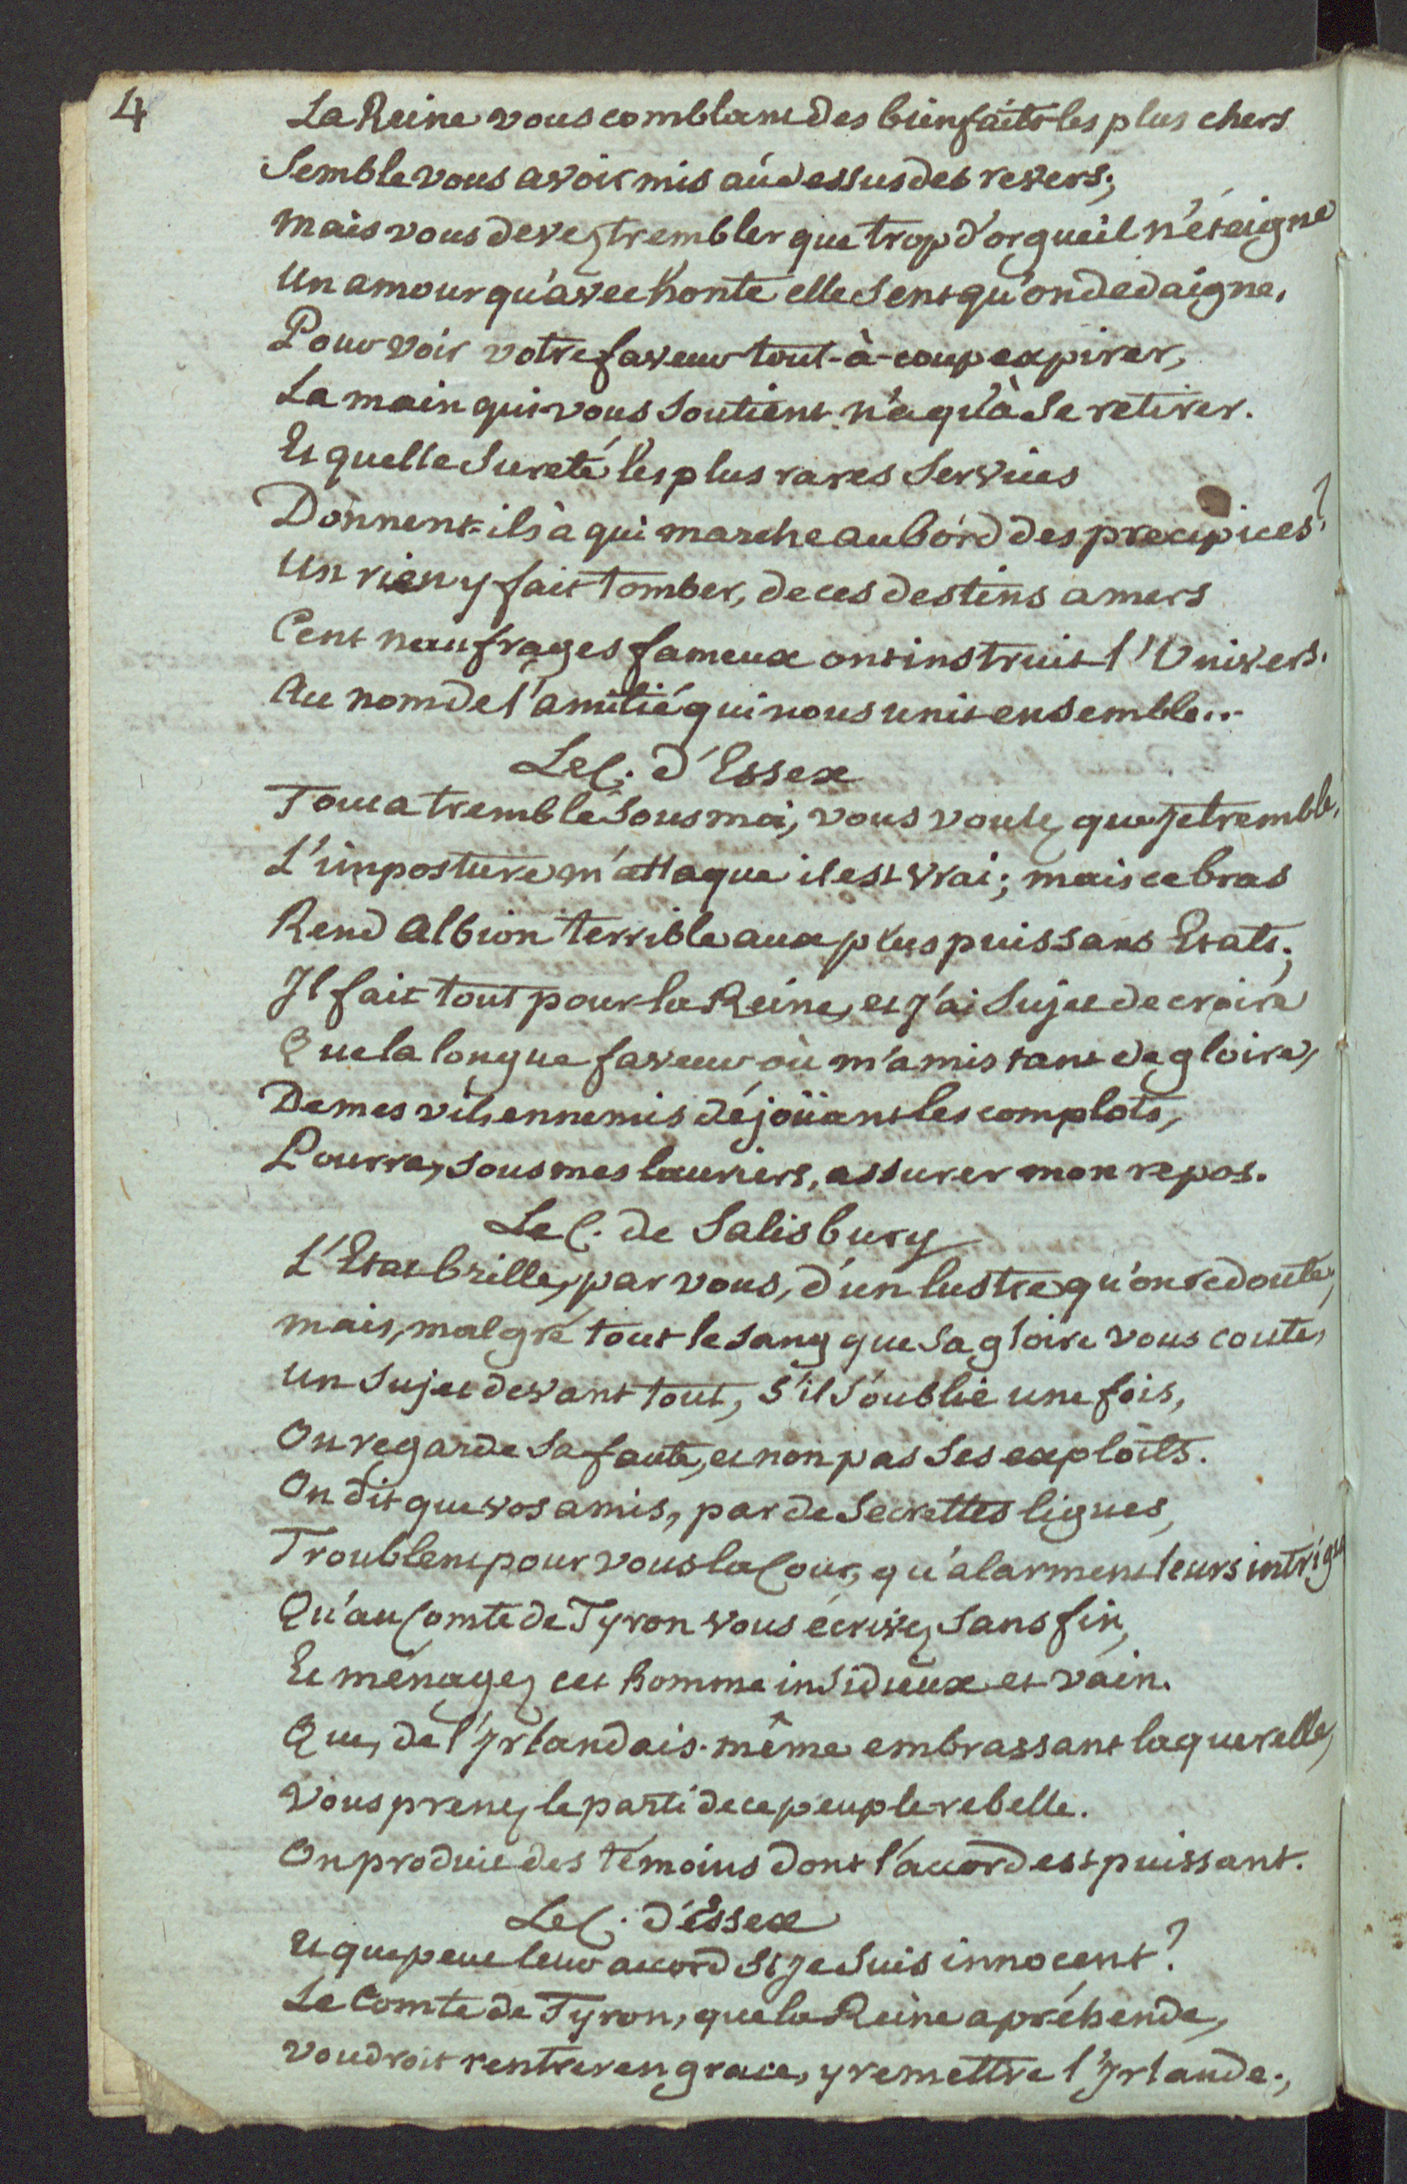 4
La Reine vous comblant des bienfaits les plus chers
Semble vous avoir mis au dessus des revers;
mais vous devez trembler que trop d'orgueil n'éteigne
Un amour qu'avec honte elle sent qu'on dédaigne.
Pour voir votre faveur tout-à-coup expirer,
La main qui vous soutient n'a qu'à se retirer.
Et quelle sureté les plus rares services
Donnent-ils à qui marche au bord des precipices?
Un rien y fait tomber, de ces destins amers
Cent naufrages fameux ont instruit l'Univers.
Au nom de l'amitié qui nous unit ensemble...
Le C. d'Essex
Tout a tremblé sous moi, vous voulez que je tremble,
L'imposture m'attaque il est vrai; mais ce bras
Rend Albion terrible aux plus puissans Etats;
Il fait tout pour la Reine, et j'ai sujet de croire
Que la longue faveur où m'a mis tant de gloire,
De mes vils ennemis déjoüant les complots,
Pourra, sous mes lauriers, assurer mon repos.
Le C. de Salisbury
L'Etat brille, par vous, d'un lustre qu'on redoute,
mais, malgré tout le sang que sa gloire vous coute,
un sujet devant tout, s'il s'oublie une fois,
On regarde sa faute, et non pas ses exploits.
On dit que vos amis, par de secrettes ligues,
Troublent pour vous la Cour, qu'alarment leurs intrigu
Qu'au Comte de Tyron vous écrivez sans fin,
Et ménagez cet homme insidieux et vain.
Que, de l'Irlandais-même embrassant la querelle,
Vous prenez le parti de ce peuple rebelle.
On produit des témoins dont l'accord est puissant.
Le C. d'Essex
Et que peut leur accord si je suis innocent?
Le Comte de Tyron, que la Reine apréhende,
voudroit rentrer en grace, y remettre l'Irlande;